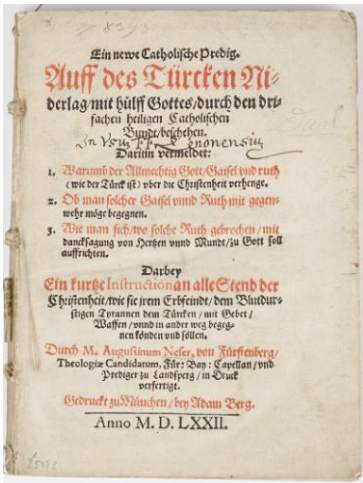 Ein newe Catholische Predig.
Auff des Türcken Ni-
derlag/mit hülff Gottes/durch den dri-
fachen heiligen Catholischen
Bundt/beschehen.
In Vsu FF
Darinn vermeldet:
1. Warumb der Allmechtig Gott/Gaisel vnd ruth
(wie der Türck ist) vber die Christenheit verhenge.
2. Ob man solcher Gaisel vnnd Ruth mit gegen-
wehr möge begegnen.
3. Wie man sich/wo solche Ruth gebrochen/mit
dancksagung von Hertzen vnnd Mundt/zu Gott soll
auffrichten.
Darbey
Ein kurtze Instruction an alle Stend der
Christenheit/wie sie jrem Erbfeindt/dem Blutdur-
stigen Tyrannen dem Türcken/mit Gebet/
Waffen/vnnd in ander weg begeg-
nen könden vnd söllen.
Durch M. Augustinum Neser, von Fürstenberg/
Theologiæ Candidatum, Für: Bay: Capellan/vnd
Prediger zu Landsperg/in Druck
verfertigt.
Gedruckt zu München/bey Adam Berg.
Anno M. D. LXXII.